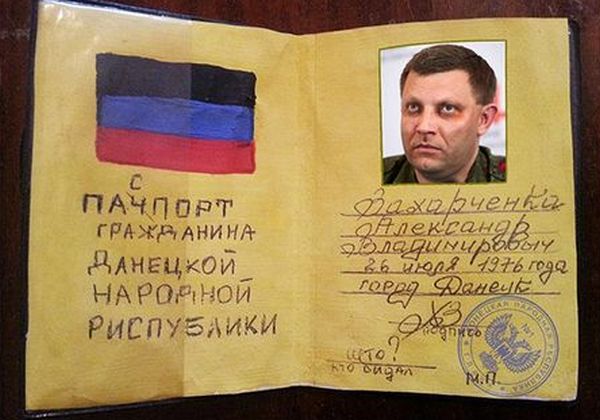 С
ПАЧПОРТ
ГРАЖДАНИНА
ДАНЕЦКОЙ
НАРОДНОЙ
РИСПУБЛИКИ
Захарченка
Александр
Владимировыч
26 июля 1976 года
город Данецк
ХЗ
ШТО?
КТО ВИДАЛ
М.П.
ДОНЕЦКАЯ НАРОДНАЯ РЕСПУБЛИКА